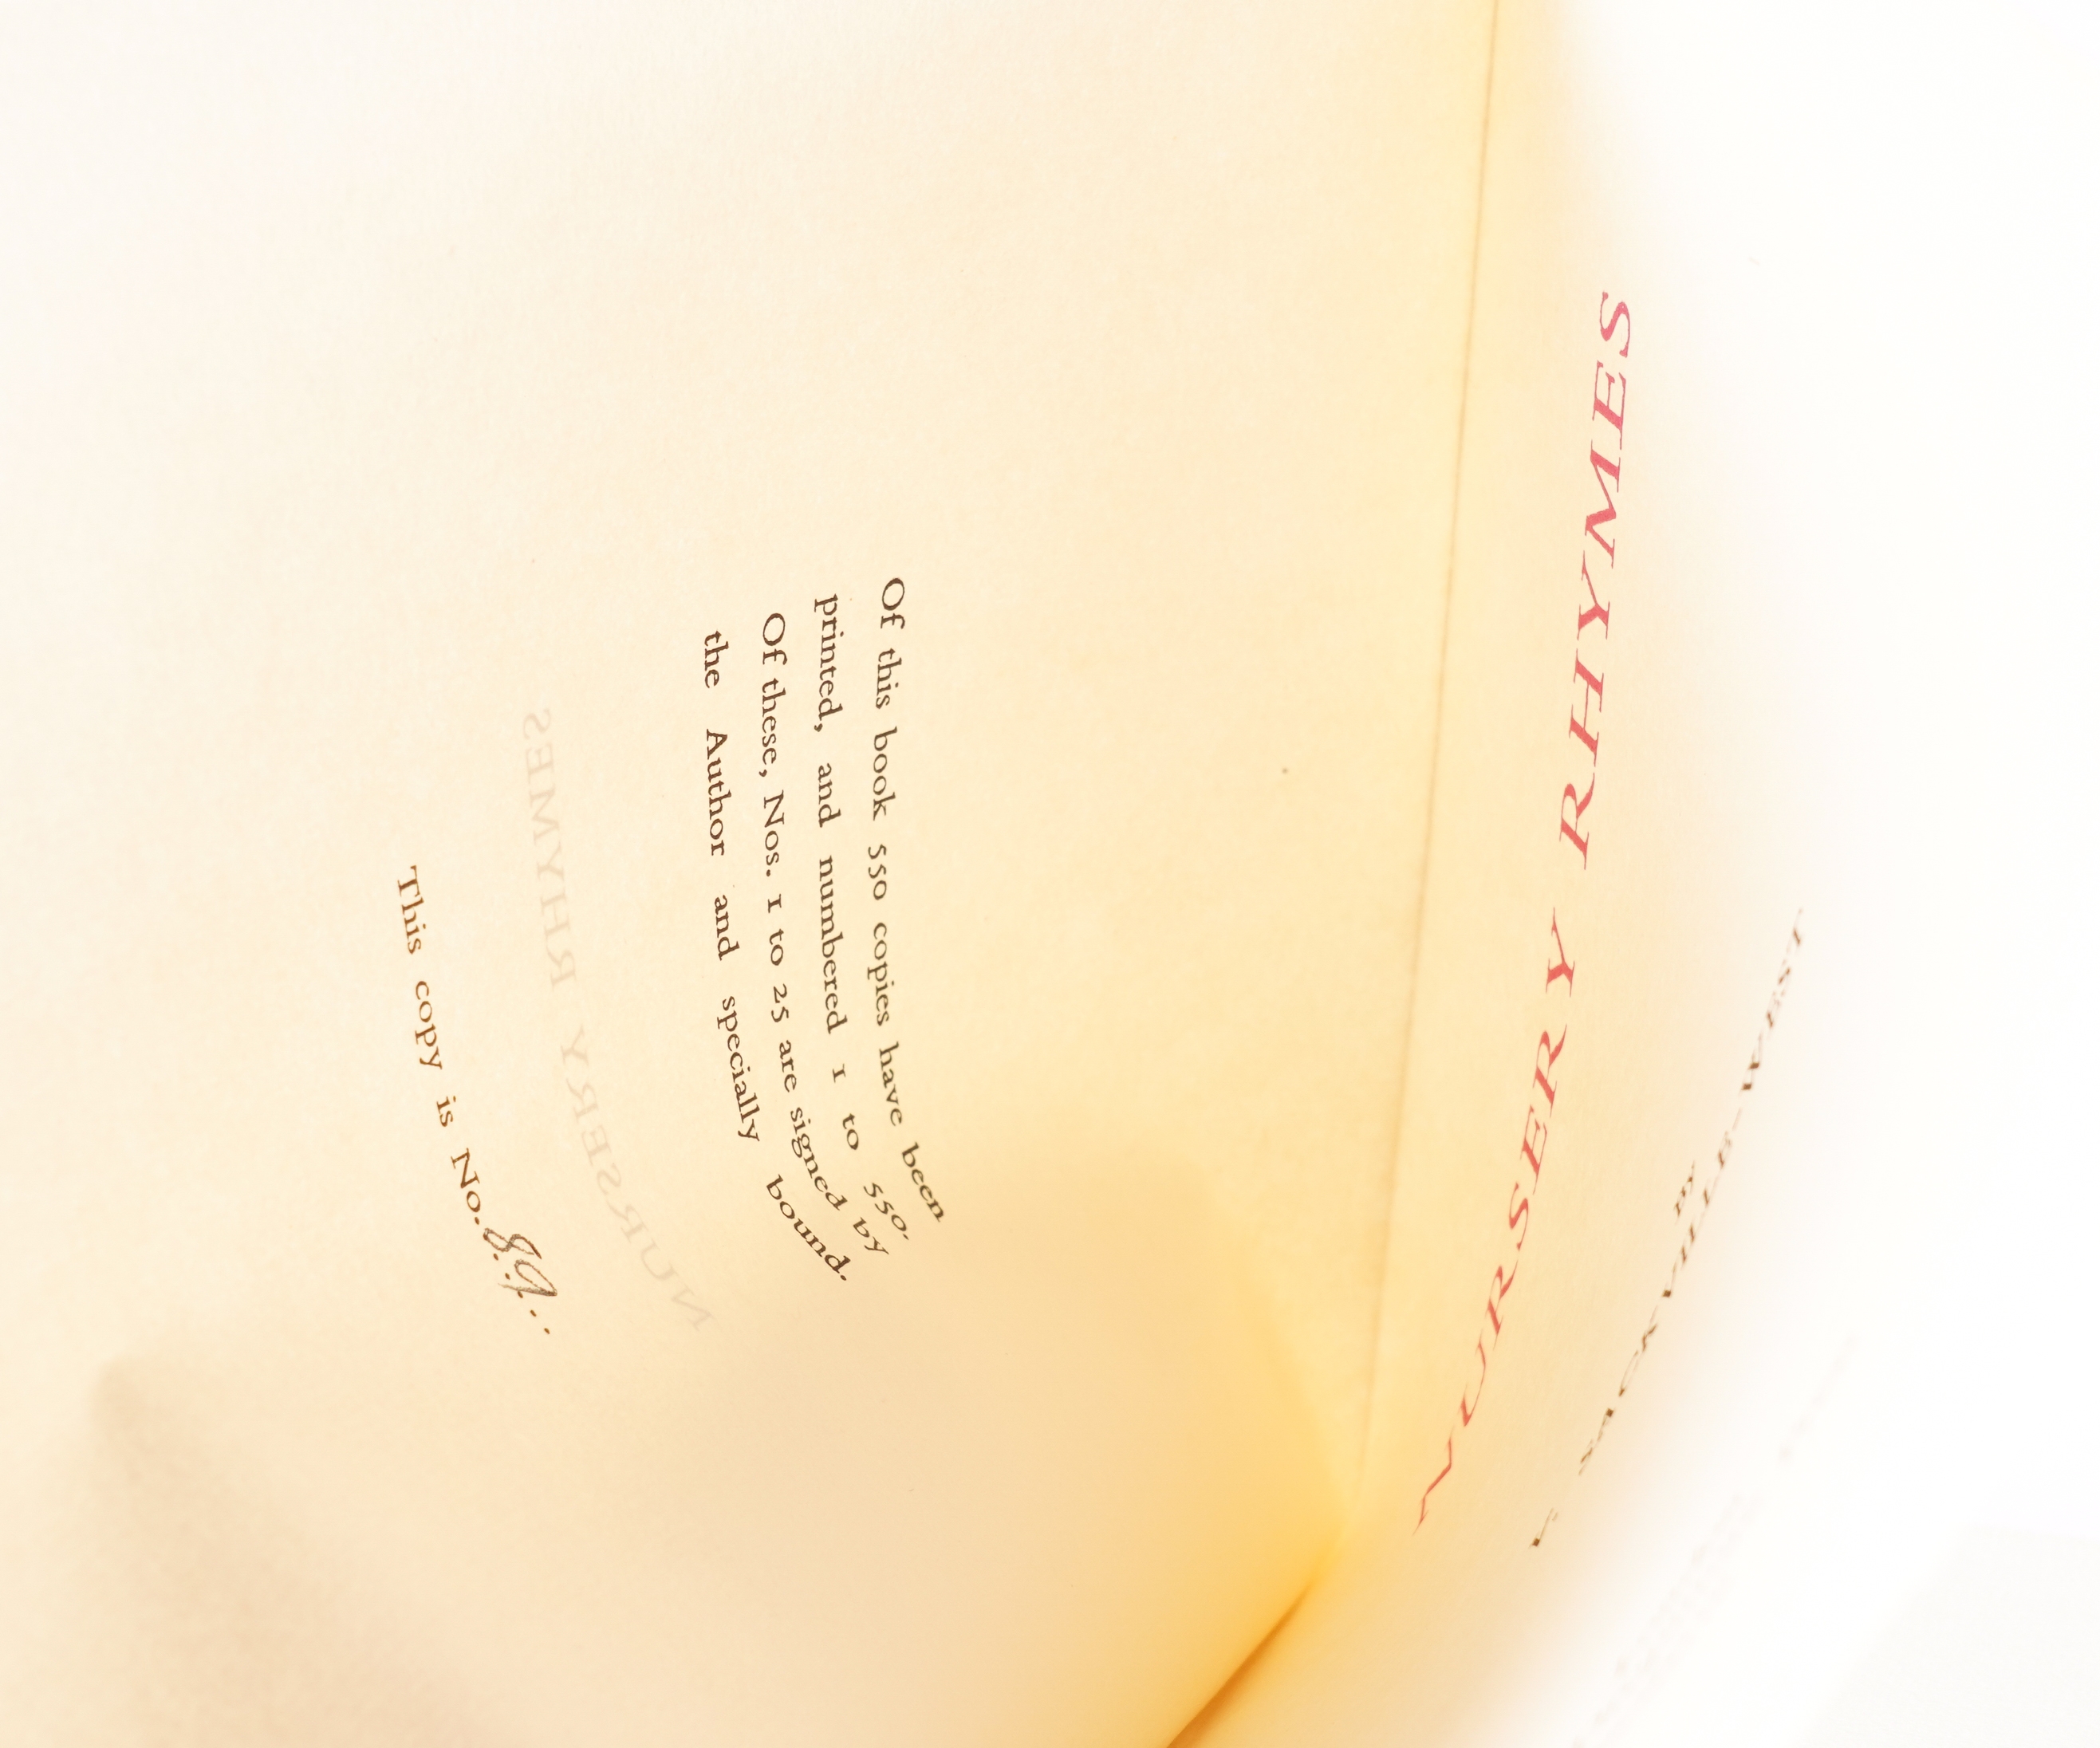 Of this book 550 copies have been
printed, and numbered 1 to 550.
Of these, Nos. 1 to 25 are signed by
the Author and specially bound.
This copy is No. 89
NURSERY RHYMES
by
V. SACKVILLE-WEST